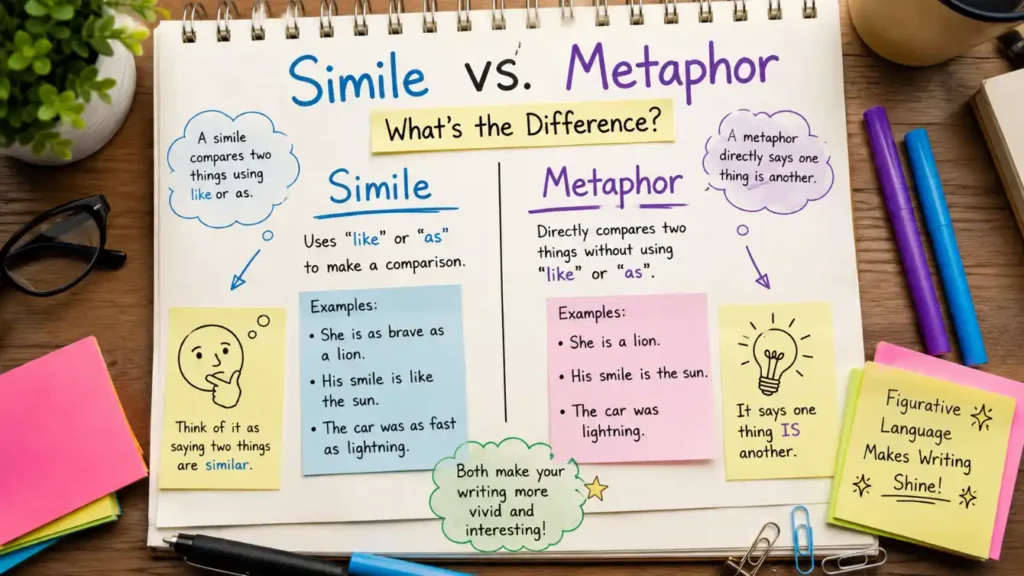 Simile vs. Metaphor
What's the Difference?
A simile
compares two
things using
like or as.
A metaphor
directly says one
thing is another.
Simile
Uses "like" or "as"
to make a comparison.
Examples:
• She is as brave as
a lion.
• His smile is like
the sun.
• The car was as fast
as lightning.
Think of it as
saying two things
are similar.
Metaphor
Directly compares two
things without using
"like" or "as".
Examples:
• She is a lion.
• His smile is the sun.
• The car was
lightning.
It says one
thing IS
another.
Both make your
writing more
vivid and
interesting!
Figurative
Language
Makes Writing
Shine!